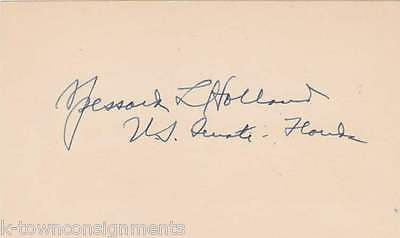 Spessard L Holland
U.S. Senate - Florida
k-townconsignments